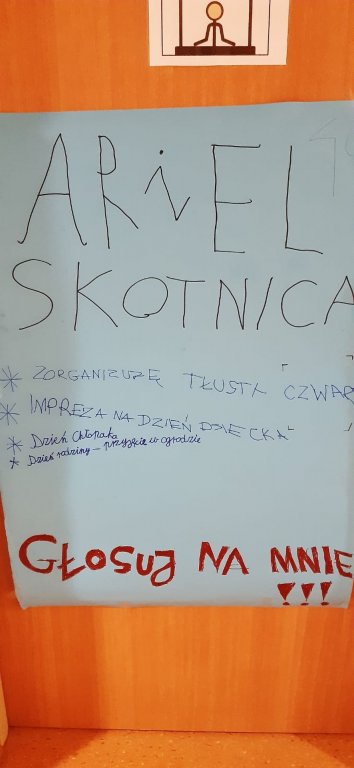 ARiEL
SKOTNICA
* ZORGANIZUJĘ TŁUSTY CZWAR
* IMPREZA NA DZIEŃ DZIECKA
* Dzień Chłopaka
* Dzień rodziny – przyjęcie w ogrodzie
GŁOSUJ NA MNIE
!!!